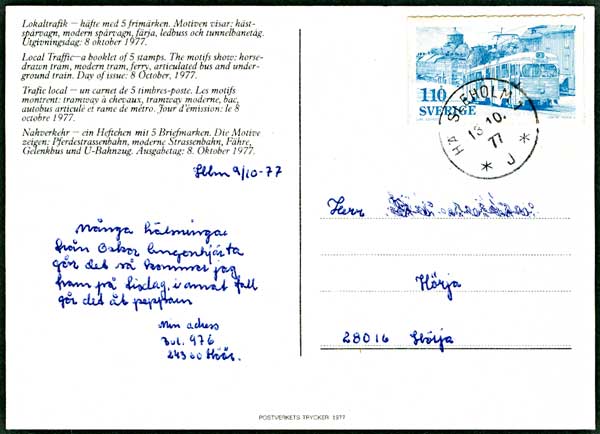 Lokaltrafik – häfte med 5 frimärken. Motiven visar: häst-
spårvagn, modern spårvagn, färja, ledbuss och tunnelbanetåg.
Utgivningsdag: 8 oktober 1977.
Local Traffic—a booklet of 5 stamps. The motifs show: horse-
drawn tram, modern tram, ferry, articulated bus and under-
ground train. Day of issue: 8 October, 1977.
Trafic local – un carnet de 5 timbres-poste. Les motifs
montrent: tramway à chevaux, tramway moderne, bac,
autobus articulé et rame de métro. Jour d'émission: le 8
octobre 1977.
Nahverkehr – ein Heftchen mit 5 Briefmarken. Die Motive
zeigen: Pferdestrassenbahn, moderne Strassenbahn, Fähre,
Gelenkbus und U-Bahnzug. Ausgabetag: 8. Oktober 1977.
110
SVERIGE
13.10.
77
* J *
9/10-77
Många hälningar
från Oskar
går det så kommer jag
fram på i annat fall
går det åt pepparn
Min adress
Box. 976
24300 Höör.
Herr
Hörja
28016 Hörja
POSTVERKETS TRYCKERI 1977